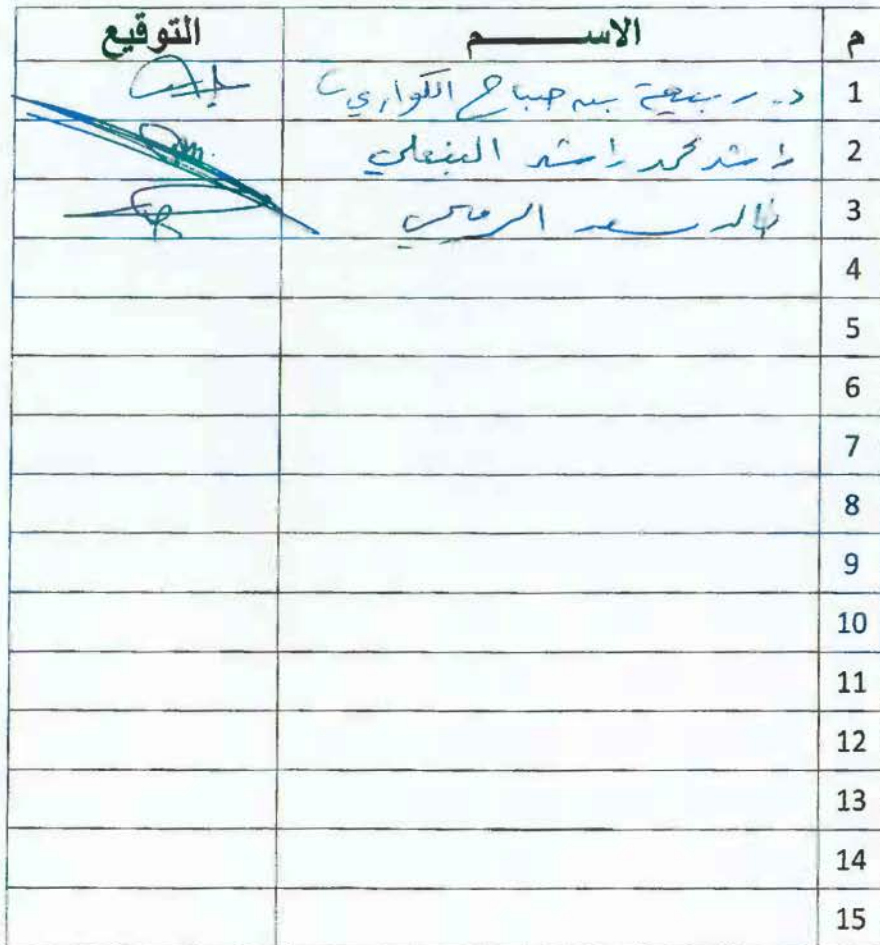 م الاسم التوقيع
1 د. ربيعة بن صباح الكواري
2 راشد محمد راشد النعيمي
3 خالد سعد الرميحي
4
5
6
7
8
9
10
11
12
13
14
15